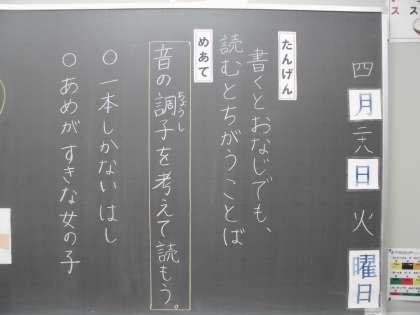 四月二八日火曜日
たんげん
書くとおなじでも、
読むとちがうことば
めあて
音の調子を考えて読もう。
ちょうし
○一本しかないはし
○あめがすきな女の子